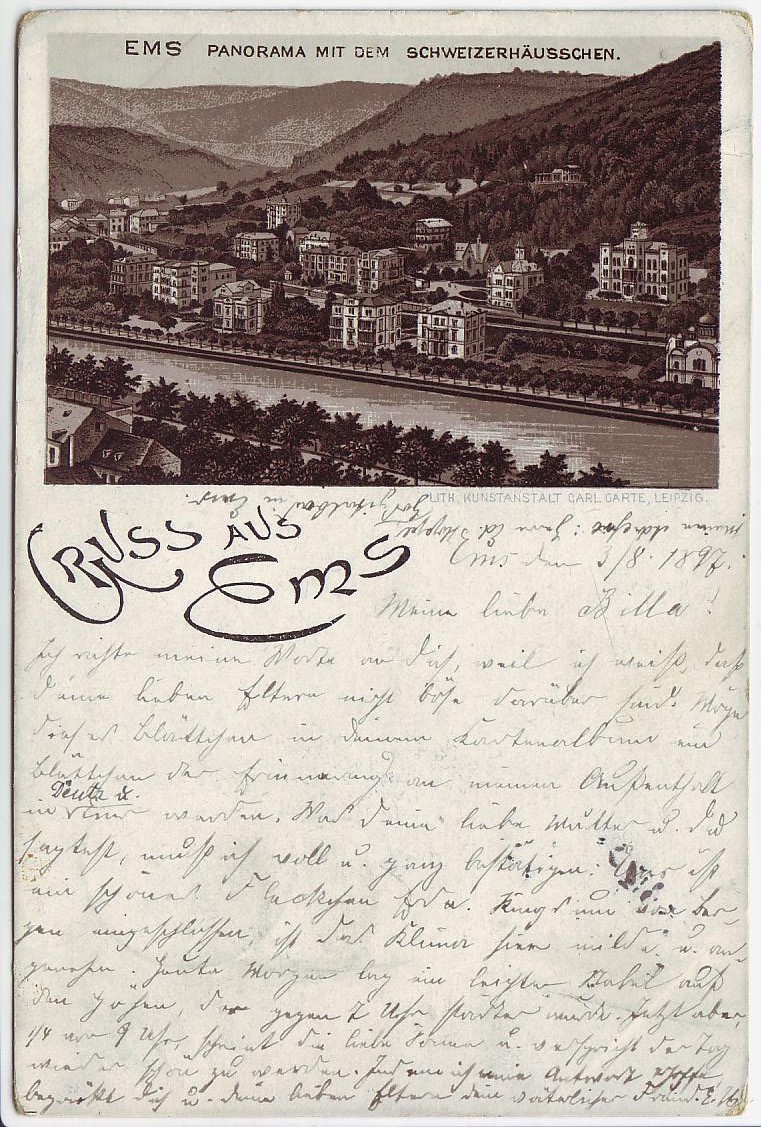 EMS PANORAMA MIT DEM SCHWEIZERHÄUSSCHEN.
LITH. KUNSTANSTALT CARL GARTE, LEIPZIG.
GRUSS AUS
EMS
Meine Adresse: Herrn Ed.
in Ems.
Ems den 3/8. 1897.
Meine liebe Billa!
Ich richte meine Worte an dich, weil ich weiß, daß
deine lieben Eltern nicht böse darüber sind. Möge
dieses Blättchen in deinem Kartenalbum ein
Blättchen der Erinnerung an meinen Aufenthalt
Deutz u.
in Ems werden. Was deine liebe Mutter u. du
sagtest, muß ich voll u. ganz bestätigen: Ems ist
ein schönes Fleckchen Erde. Rings um von Ber-
gen eingeschlossen, ist das Klima hier milde u. an-
genehm. Heute Morgen lag ein leichter Nebel auf
den Höhen, der gegen 7 Uhr stärker wurde. Jetzt aber,
1/4 vor 9 Uhr, scheint die liebe Sonne u. verspricht der Tag
wieder schön zu werden. Indem ich eine Antwort erhoffe,
begrüßt dich u. deine lieben Eltern dein väterlicher Freund. E.